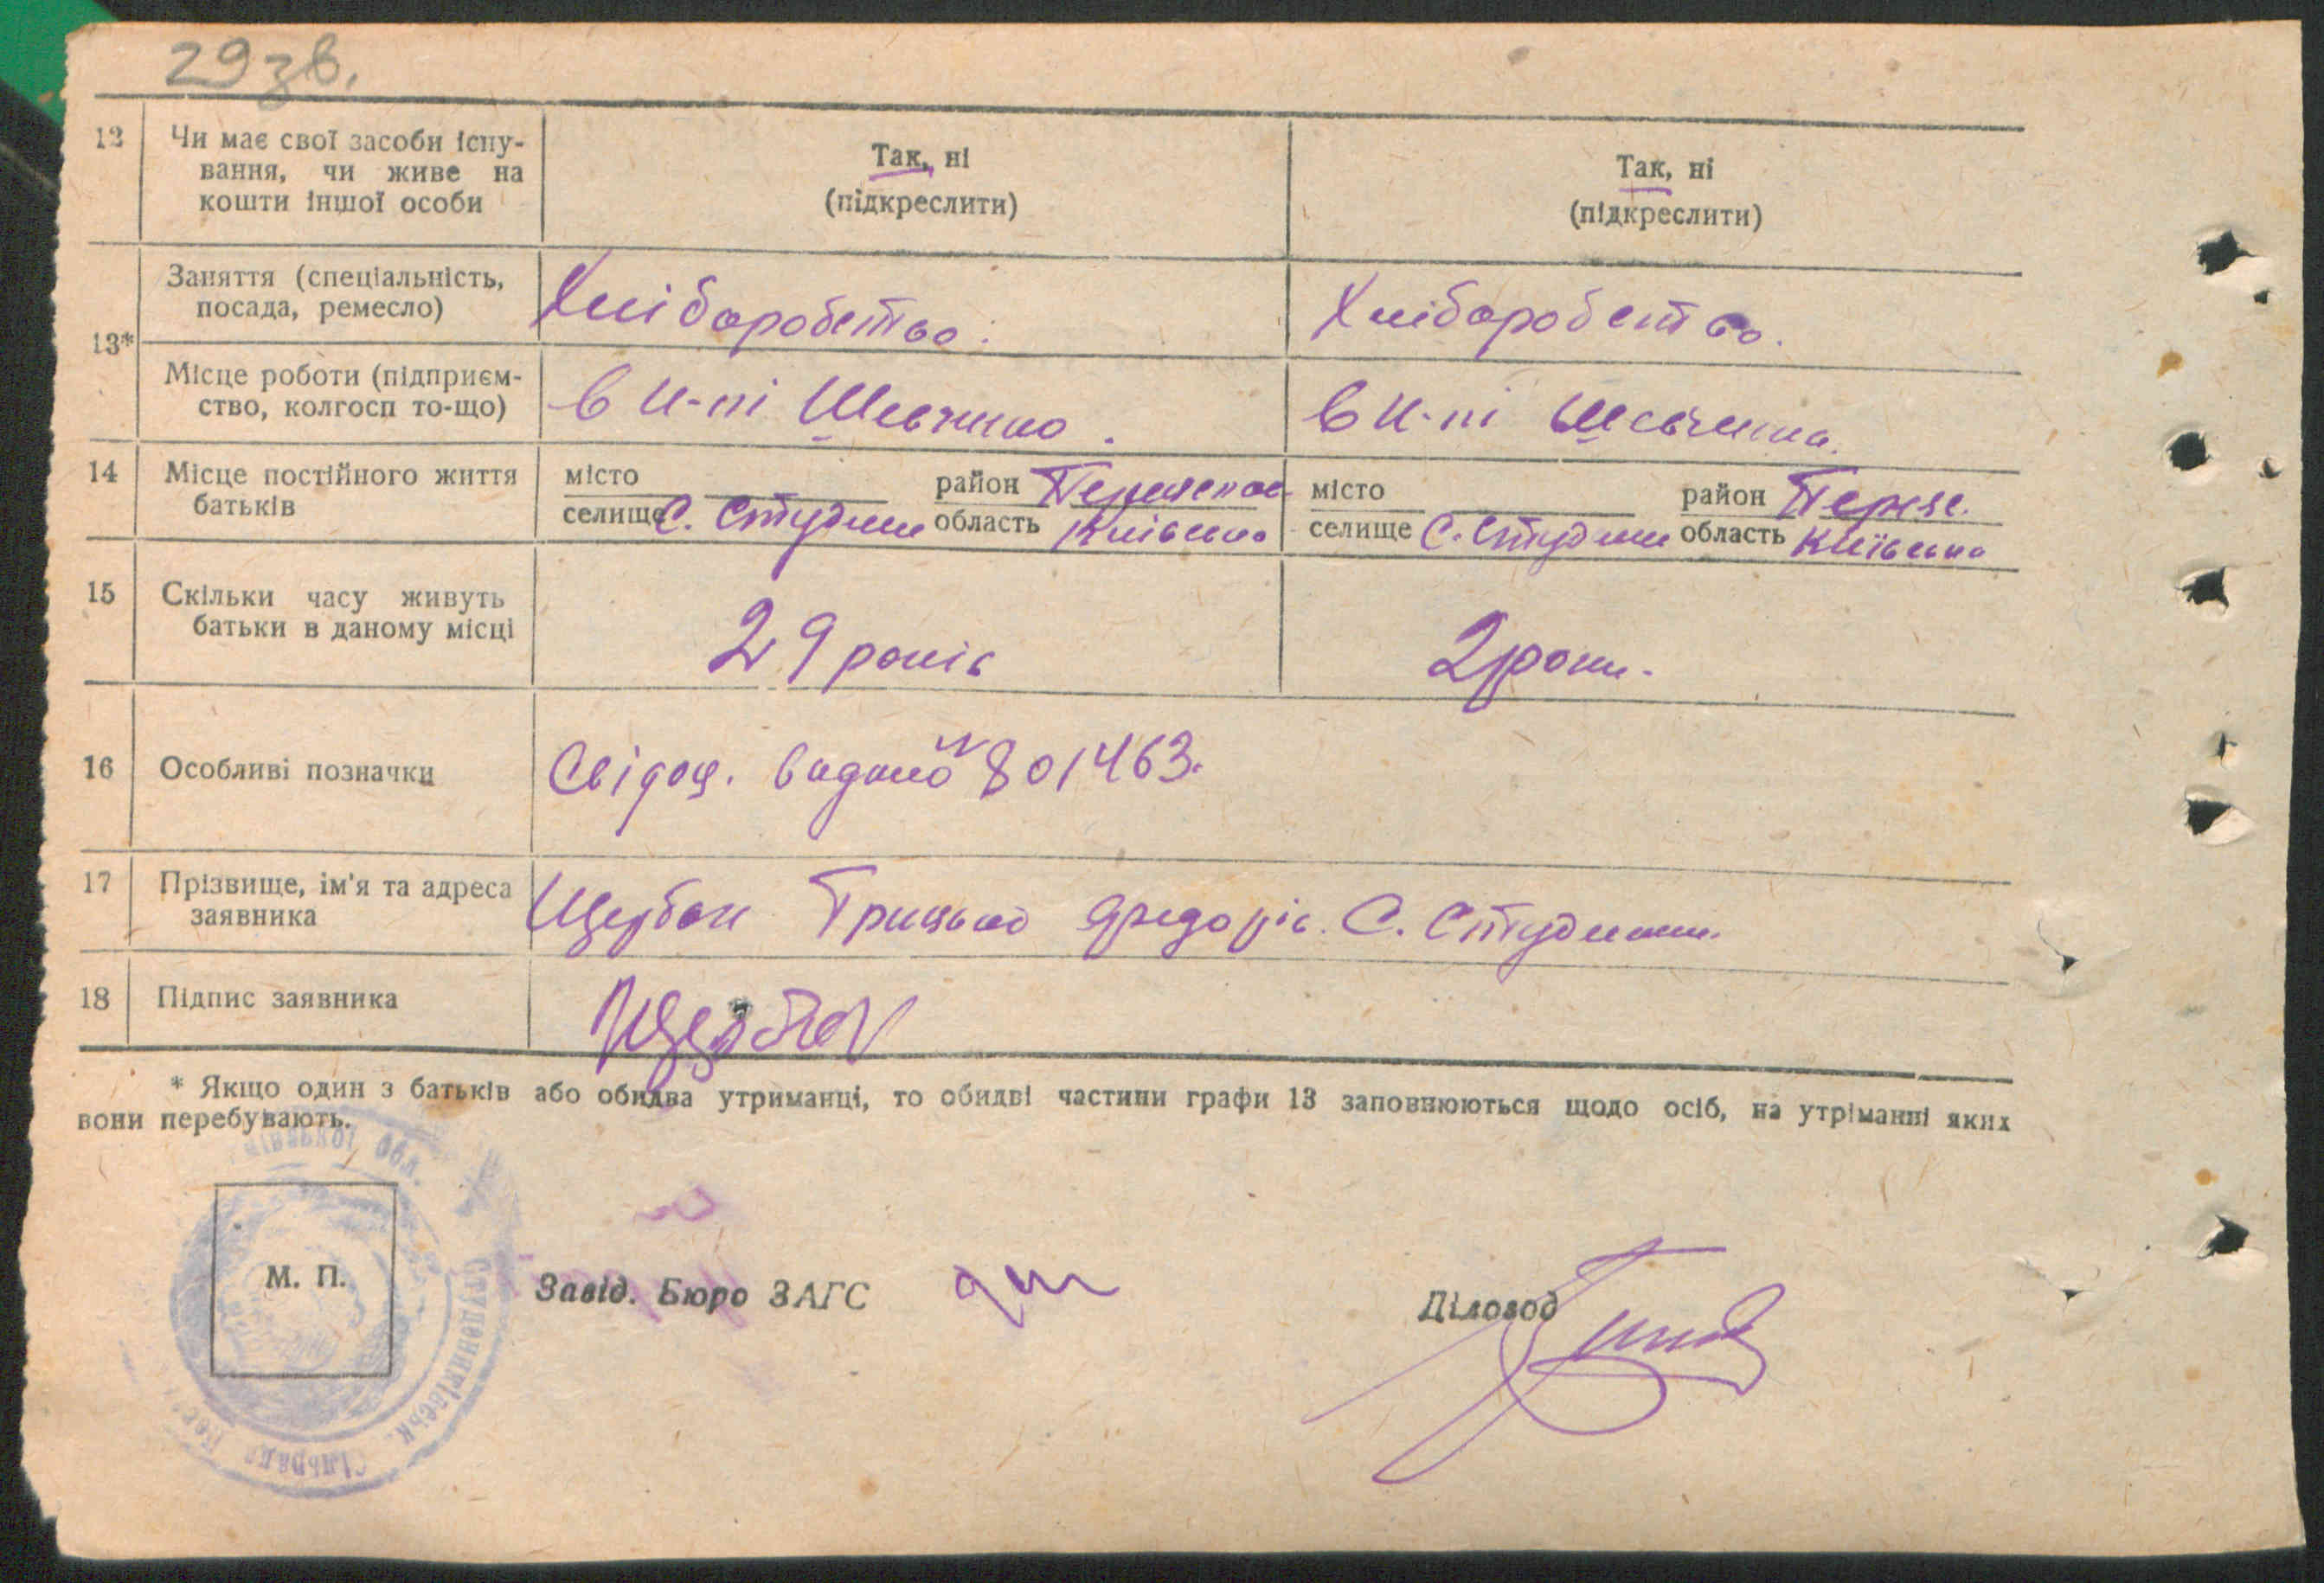 29 зв.
12 Чи має свої засоби існу-
вання, чи живе на
кошти іншої особи
Так, ні
(підкреслити)
Так, ні
(підкреслити)
13*
Заняття (спеціальність,
посада, ремесло)
Хліборобство.
Хліборобство.
Місце роботи (підприєм-
ство, колгосп то-що)
в к-пі Шевченко.
в к-пі Шевченка.
14 Місце постійного життя
батьків
місто
селище С. Студеники
район
область Київська
місто
селище С. Студеники
район Переяс.
область Київська
15 Скільки часу живуть
батьки в даному місці
29 років
2 роки.
16 Особливі позначки
Свідоц. видано № 801463.
17 Прізвище, ім'я та адреса
заявника
Щербак Грицько Федорів. С. Студеники.
18 Підпис заявника
Щербак
* Якщо один з батьків або обидва утриманці, то обидві частини графи 13 заповнюються щодо осіб, на утріманні яких
вони перебувають.
М. П.
Завід. Бюро ЗАГС
Діловод